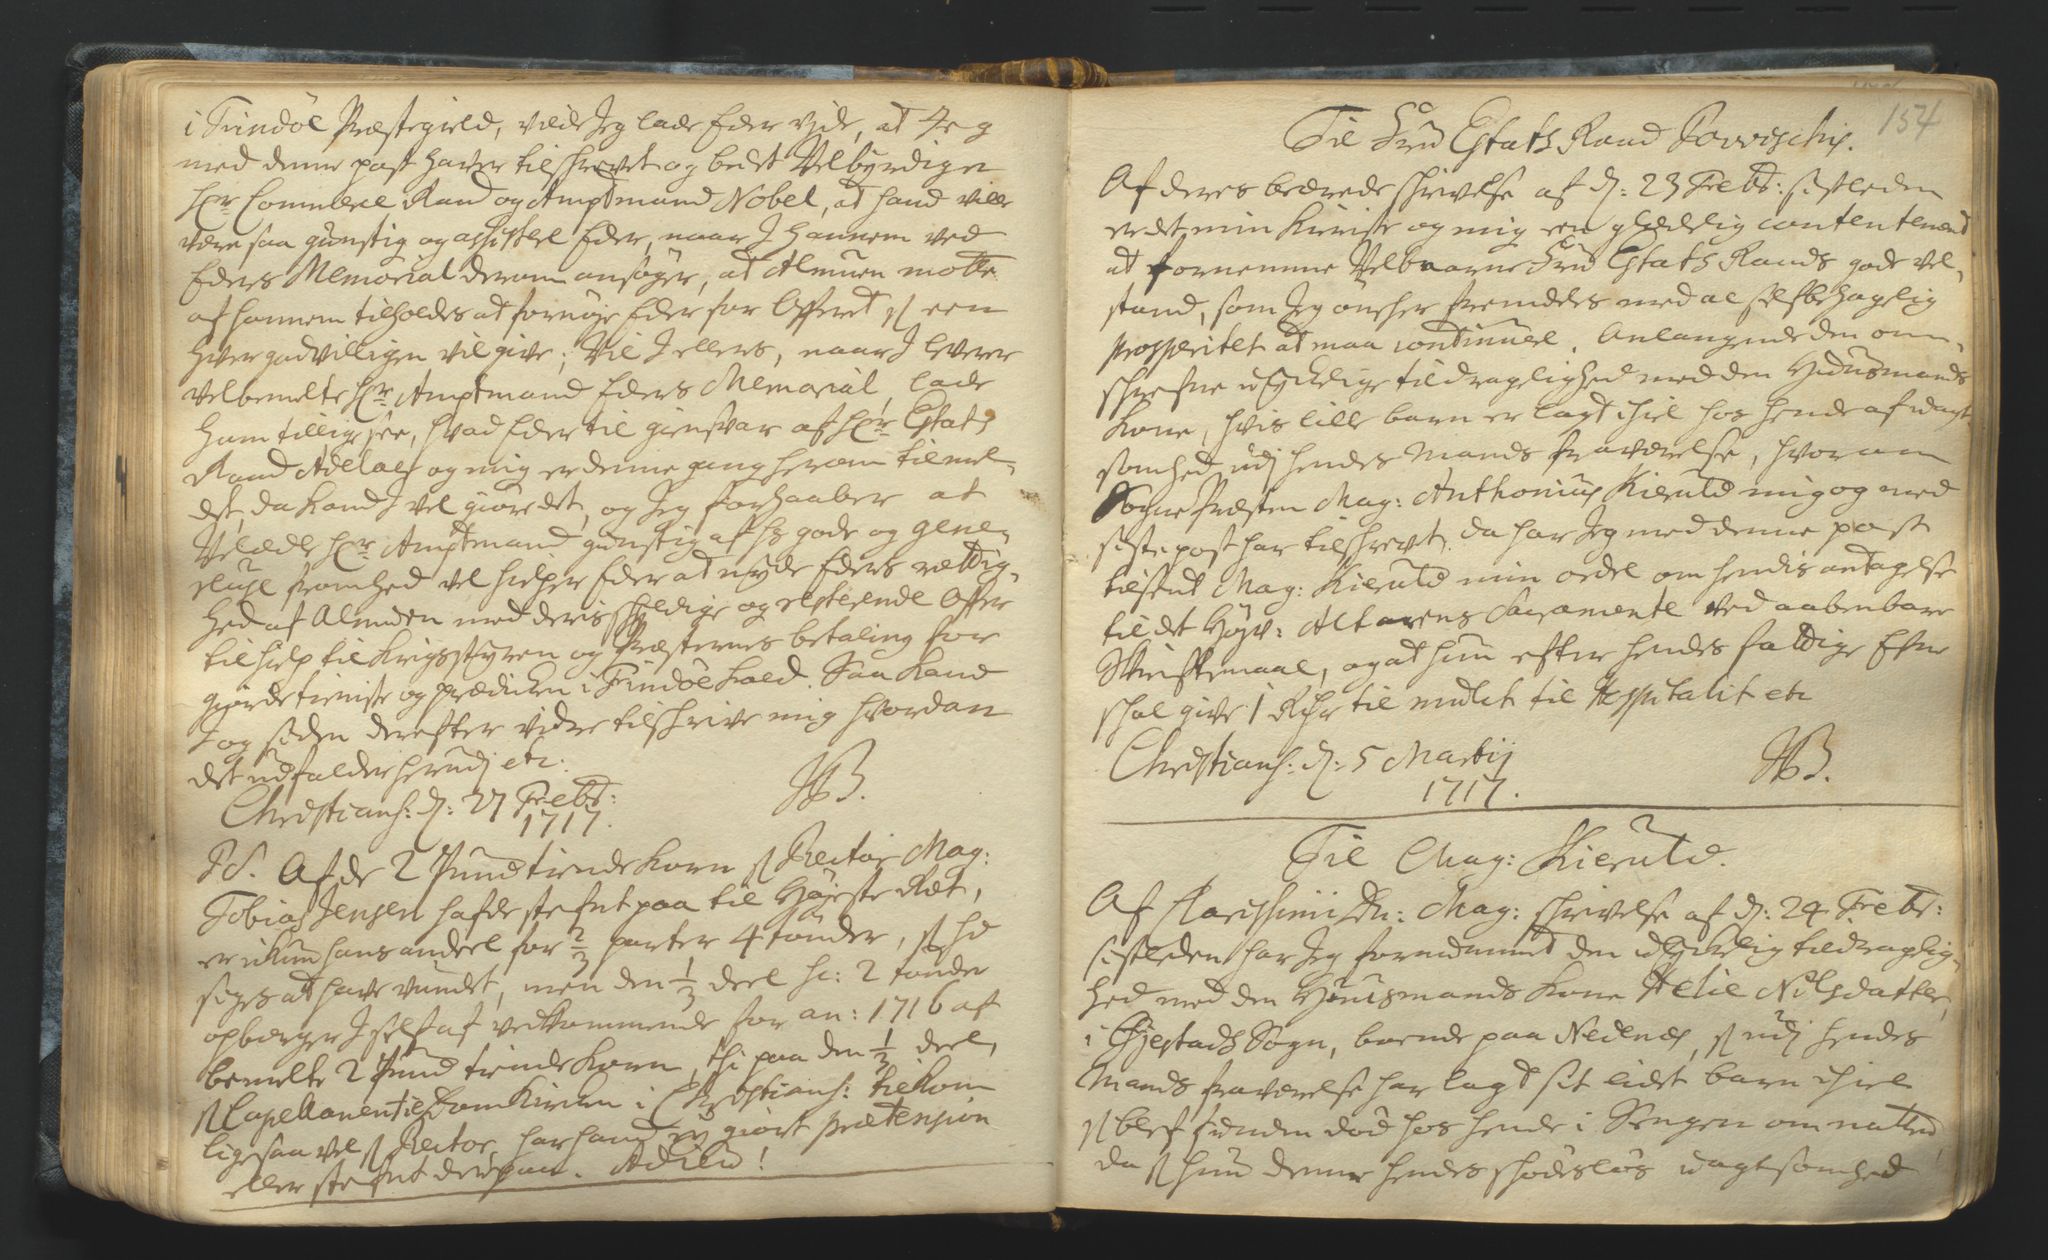 i Findöe Præstegield, vilde Jeg lade Eder vide, at Jeg
med denne post haver tilskrevet og bedet Velbyrdige
Hr Commerce Raad og Amptmand Nobel, at hand ville
være saa gunstig og assistere Eder, naar I hannem ved
Eders Memorial derom ansøger, at Almuen motte
af hannem tilholdes at fornøje Eder for Offeret, een
hver godvilligen vil give; Vil I ellers, naar I leverer
velbemelte Hr Amptmand Eders Memorial, lade
ham tillige see, hvad Eder til giensvar af Hr Estats
Raad Adelaer og mig er denne gang herom tilmel-
det, da kand I vel giøre det, og Jeg forhaaber at
Velædle Hr Amptmand gunstig af hs gode og gene-
reuse fromhed vel hielper Eder at nyde Eders rettig-
hed af Almuen med deris skyldige og resterende Offer
til hielp til Krigsstyren og Præsternes betaling for
giorde tieniste og prædicken i Findöe kald. Saa kand
I og siden derefter videre tilskrive mig hvordan
det udfalder herudj etc:
Christians: d: 27 Febr:
1717.
JB.
PS. Af de 2 Pund tiende Korn Rector Mag:
Tobias Jensen hafde stefnt paa til Høyeste Ræt,
er ikun hans andeel for 2/3 parter 4 tönder, hd
siges at have vundet, men den 1/3 deel hc: 2 tönder
opbærger I self af vedkommende for an: 1716 af
bemelte 2 Pund tiende Korn, thi paa den 1/3 deel,
Capellanen til Domkirken i Christians: tilkom
ligesaa vel Rector, har hand ej giort prætension
eller stefnt derpaa. Adieu!
154
Til Frue Estats Raad Povischis.
Af deres beærede skrivelse af d: 23 Febr: sistleden
er det min Kieriste og mig en glædelig contentement
at fornemme Velbaarne Frue Estats Raads gode vel-
stand, som Jeg ønsker fremdeles med al selfbehagelig
prosperitet at maa continuere. Anlangende den om-
skrefne ulyckelige tildragelighed med den Huusmands
Kone, hvis lille barn er lagt ihiel hos hende af uagt-
somhed udj hendes Mands fraværelse, hvorom
Sogne Præsten Mag: Anthonius Kierulf mig og med
siste post har tilskrevet, da har Jeg med denne post
tilsendt Mag: Kierulf min ordre om hendis antagelse
til det Høyv: Altarens Sacramente ved aabenbare
Skriftemaal, og at hun efter hendes fattige Efne
skal give 1 Rdr til mulct til Hospitalit etc
Christians: d: 5 Martij
1717.
JB.
Til Mag: Kierulf.
Af Clarissimi Dn: Mag: skrivelse af d: 24 Febr:
sistleden har Jeg fornummet den ulyckelig tildragelig-
hed med den Huusmands Kone Aelie Nilsdatter,
i Øjestads Sogn, boende paa Nedenæs, udj hendes
Mands fraværelse har lagt sit lidet barn ihiel
blef funden död hos hende i Sengen om natten
da hun denne hendes skjødeslös uagtsomhed